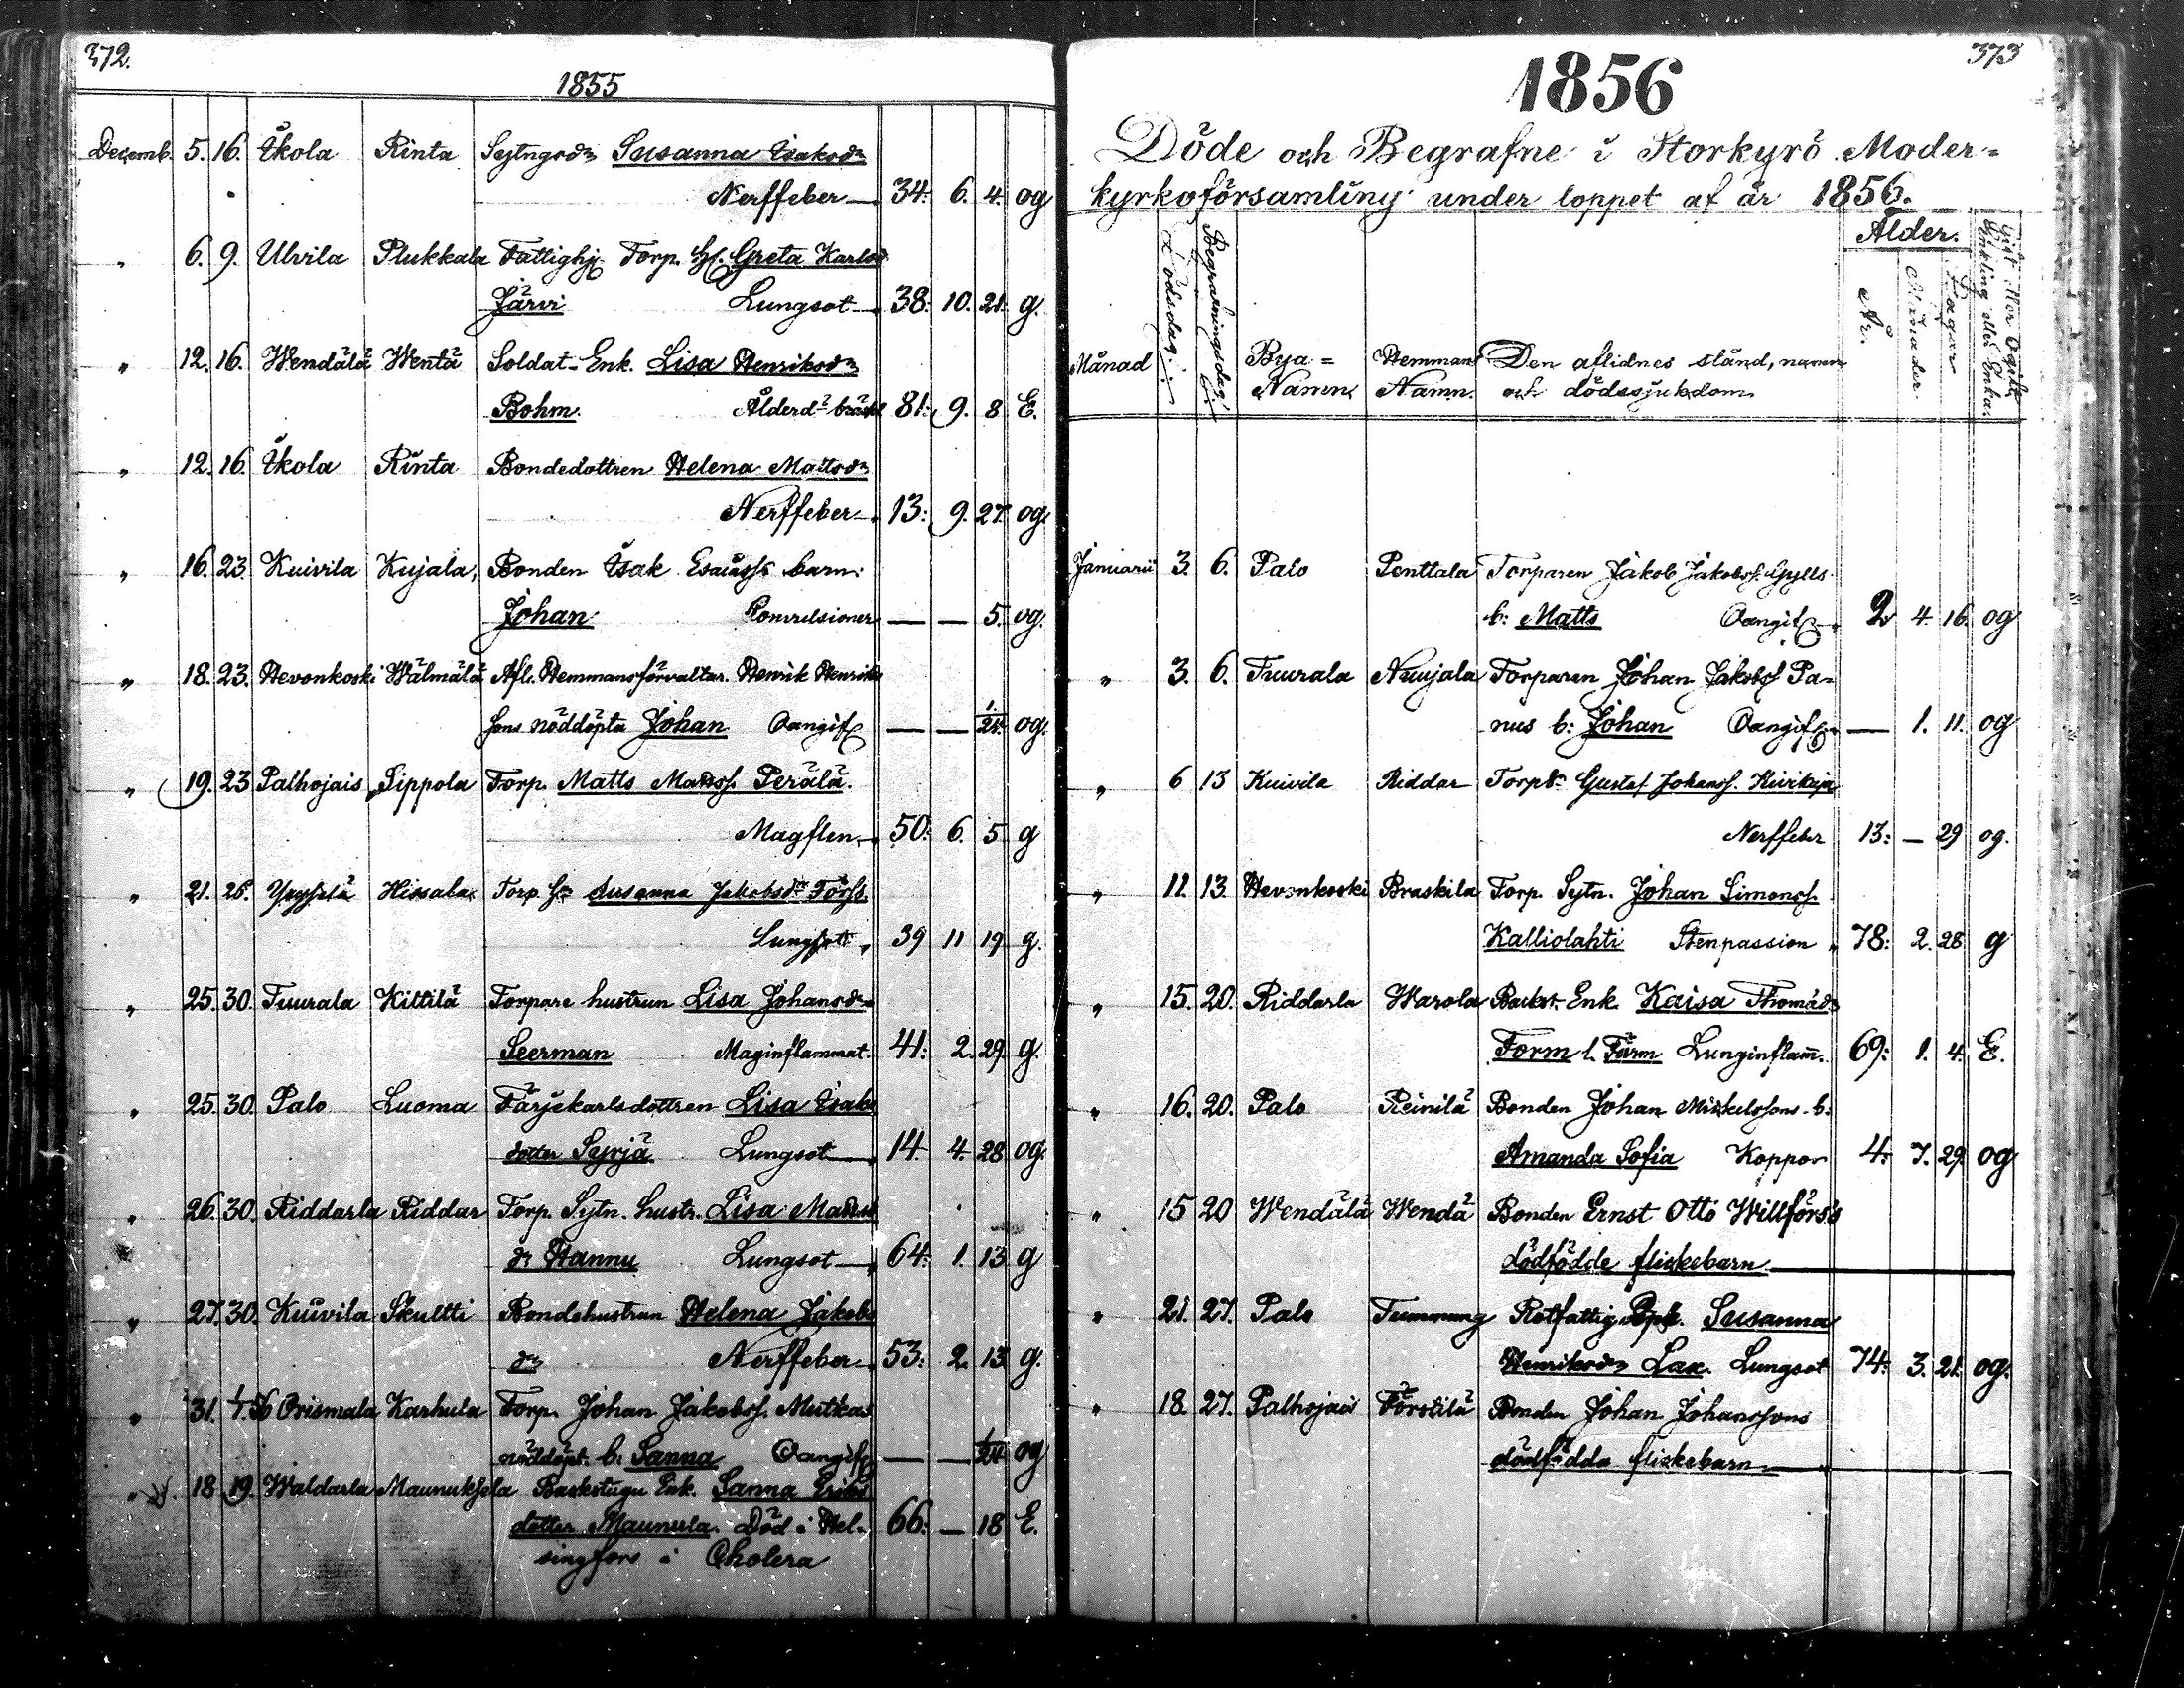 372.
1855
Decemb. 5. 16. Ikola Rinta Sytngsdr Susanna Isaksdr
Nerffeber 34: 6. 4. og
" 6. 9. Ulvila Plukkala Fattighj. Torp. Hr. Greta Karlsd
Järvi Lungsot 38: 10. 21. g.
" 12. 16. Wendälä Wentä Soldat-Enk. Lisa Henriksdr
Bohm. Ålderd. bräckl 81: 9. 8 E.
" 12. 16. Ikola Rinta Bondedottren Helena Matsdr
Nerffeber 13: 9. 27. og.
" 16. 23. Kuivila Kujala, Bonden Isak Esaiass: barn:
Johan Konvulsioner — — 5. og.
" 18. 23. Hevonkoski Wälmälä Afl. Hemmansförvaltar. Henrik Henriks
sons nöddöpta Johan Oangif — — 1/24. og.
" 19. 23 Palhojais Sippola Torp. Matts Matss. Perälä.
Magflen 50: 6. 5 g
" 21. 26. Hissala Torp. Hr Susanna Jakobsdr Forss.
Lungsot 39 11 19 g.
" 25. 30. Tuurala Kittilä Torpare hustrun Lisa Johansdr
Seerman Maginflammat. 41: 2. 29. g.
" 25. 30. Palo Luoma Färjekarlsdottren Lisa Isaks
dotter Syrjä Lungsot 14 4. 28 og.
" 26. 30. Riddarla Riddar Torp. Sytn. hustr. Lisa Matts
dr Hannu Lungsot 64: 1. 13 g
" 27. 30. Kuivila Skultti Bondehustrun Helena Jakobs
dr Nerffeber 53: 2. 13. g.
" 31. 1/1. 56 Orismala Karhula Torp. Johan Jakobss. Mutkas
nöddöpt. b. Sanna Oangif — — 1/24 og
" 18 19. Waldarla Maunuksela Backstugu Enk. Sanna Eriks
dotter Maunula. Död i Hel- 66: — 18 E.
singfors i Cholera
373
1856
Döde och Begrafne i Storkyrö Moder=
kyrkoförsamling under loppet af år 1856.
Månad Dödsdag. Begrafningsdag. Bya= Namn. Hemmans Namn. Den aflidnes stånd, namn
och dödssjukdom Ålder. År. Månader. Dagar Gift eller Ogift, Enkling eller Enka.
Januarii 3. 6. Palo Penttala Torparen Jakob Jakobss. Gylls
b: Matts Oangif 2 4. 16. og
" 3. 6. Tuurala Nuujala Torparen Johan Jakobss Pa=
nus b: Johan Oangif — 1. 11. og
" 6 13 Kuivila Riddar Torpsr Gustaf Johanss. Kivikuja
Nerffeber 13: — 29 og.
" 11. 13. Hevonkoski Braskila Torp. Sytn. Johan Simonss.
Kalliolahti Stenpassion 78: 2. 28. g
" 15. 20. Riddarla Warola Backst. Enk. Kaisa Thomasdr
Form l. Färm Lunginflam̄. 69: 1. 4. E.
" 16. 20. Palo Reinilä Bonden Johan Mickelssons b:
Amanda Sofia Koppor 4: 7. 29. og
" 15 20 Wendälä Wendä Bonden Ernst Otto Willförs's
dödfödde flickebarn
" 21. 27. Palo Tummung Rotfattig Susanna
Henriksdr Lax. Lungsot 74: 3. 21. og.
" 18. 27. Palhojais Förstilä Bonden Johan Johanssons
dödfödda flickebarn